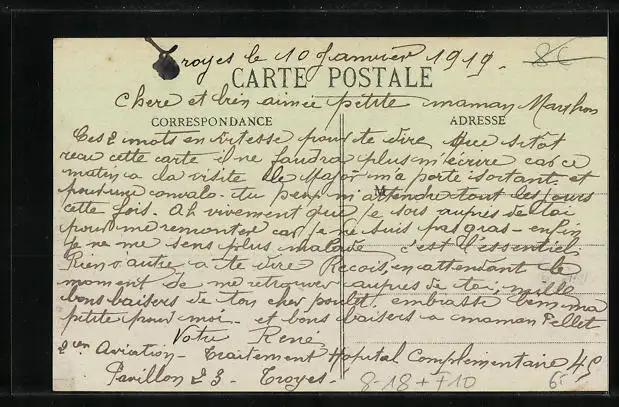 Troyes le 10 Janvier 1919.
CARTE POSTALE
chere et bien aimée petite maman
CORRESPONDANCE
ADRESSE
Ces 2 mots en vitesse pour te dire que sitôt
reçu cette carte il ne faudra plus m'ecrire car ce
matin a la visite le Major m'a porté sortant et
pour une convalo. tu peux m'attendre tout les jours
cette fois. Ah vivement que je sois aupres de toi
pour me remonter car je ne suis pas gras - enfin
je ne me sens plus malade c'est l'essentiel
Rien d'autre a te dire Recois, en attendant le
moment de me retrouver aupres de toi, mille
bons baisers de ton cher poulet. embrasse bien ma
petite pour moi - et bons baisers a maman Pellet
Votre René
2eme Aviation - Traitement Hopital Complementaire 49
Pavillon 23 - Troyes -
8-18 + F10